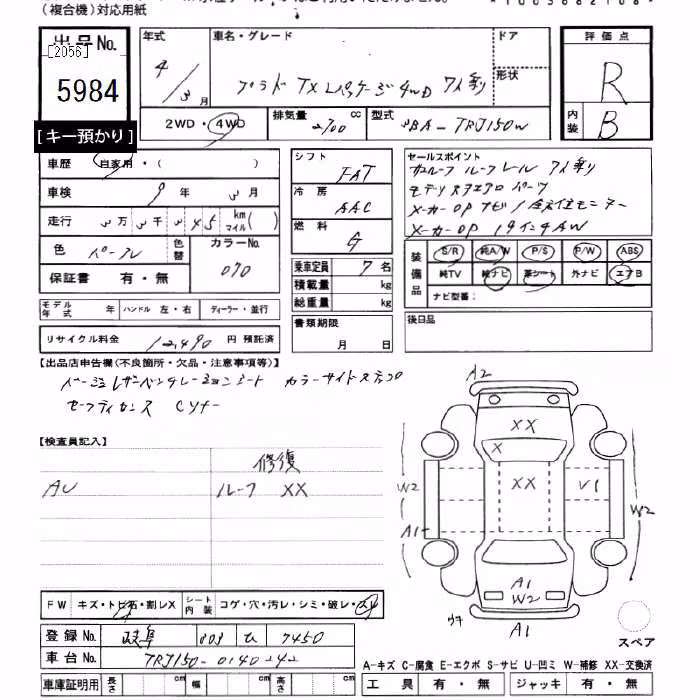 (複合機)対応用紙
出品No.
[2056]
5984
[キー預かり]
年式
4/3月
車名・グレード
プラド TX Lパッケージ 4WD 7人乗り
ドア
形状
2WD・4WD
排気量 2700 cc
型式 3BA-TRJ150W
評価点
R
内装 B
車歴 自家用・( )
車検 9年 3月
走行 3万3千345 km マイル( )
色 パール 色替
カラーNo. 070
保証書 有・無
シフト FAT
冷房 AAC
燃料 G
乗車定員 7名
積載量 kg
総重量 kg
書類期限
月 日
セールスポイント
サンルーフ ルーフレール 7人乗り
モデリスタエアロパーツ
メーカーOPナビ/全方位モニター
メーカーOP 19インチAW
装備品
S/R 純A/W P/S P/W ABS
純TV 純ナビ 革シート 外ナビ エアB
ナビ型番:
後日品
モデル年式 年 ハンドル 左・右 ディーラー・並行
リサイクル料金 12,490 円 預託済
【出品店申告欄(不良箇所・欠品・注意事項等)】
ベージュレザーベンチレーションシート カラーサイドステップ
セーフティセンス
【検査員記入】
修復
AU ルーフ XX
A2
XX
X
XX
V1
W2
A1
W2
A1
W2
A1
FW キズ・トビ石・割レX シート内装 コゲ・穴・汚レ・シミ・破レ・スレ
登録No. 岐阜 303 ひ 7450
車台No. TRJ150-0140242
スペア
A-キズ C-腐食 E-エクボ S-サビ U-凹ミ W-補修 XX-交換済
車庫証明用 長さ cm 幅 cm 高さ cm
工具 有・無 ジャッキ 有・無